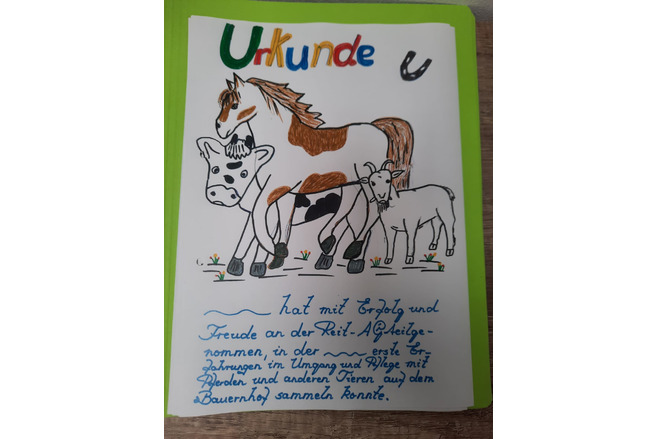 Urkunde
hat mit Erfolg und
Freude an der Reit-AG teilge-
nommen, in der erste Er-
fahrungen im Umgang und Pflege mit
Pferden und anderen Tieren auf dem
Bauernhof sammeln konnte.